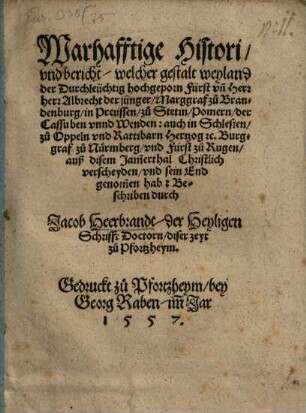 Warhafftige Histori/
vnd bericht/ welcher gestalt weyland
der Durchleüchtig hochgeporn Fürst vñ Herr
herr Albrecht der jünger/ Marggraf zů Bran-
denburg/ in Preussen/ zů Stetin/ Pomern/ der
Cassuben vnnd Wenden: auch in Schlesien/
zů Oppeln vnd Rattibarn Hertzog ꝛc. Burg-
graf zů Nürmberg/ vnd Fürst zů Rugen/
auß disem Jamerthal Christlich
verscheyden/ vnd sein End
genomen hab: Be-
schriben durch
Jacob Heerbrande/ der Heyligen
Schrifft Doctorn/ diser zeyt
zů Pfortzheym.
Gedruckt zů Pfortzheym/ bey
Georg Raben/ im Jar
1 5 5 7.